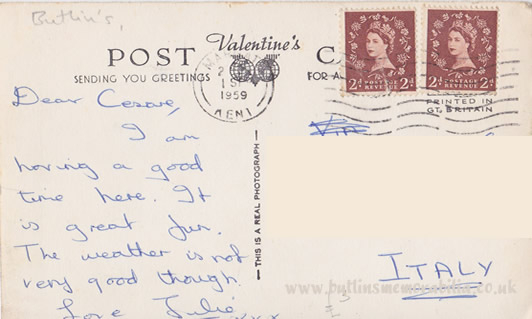 Butlin's,
POST
Valentine's
SENDING YOU GREETINGS
FOR A
2 d POSTAGE REVENUE 2 d
2 d POSTAGE REVENUE 2 d
1959
KENT
PRINTED IN
GT. BRITAIN
Dear Cesare,
I am
having a good
time here. It
is great fun.
The weather is not
very good though.
Love Julie
xxx
THIS IS A REAL PHOTOGRAPH
Via
ITALY
www.butlinsmemorabilia.co.uk